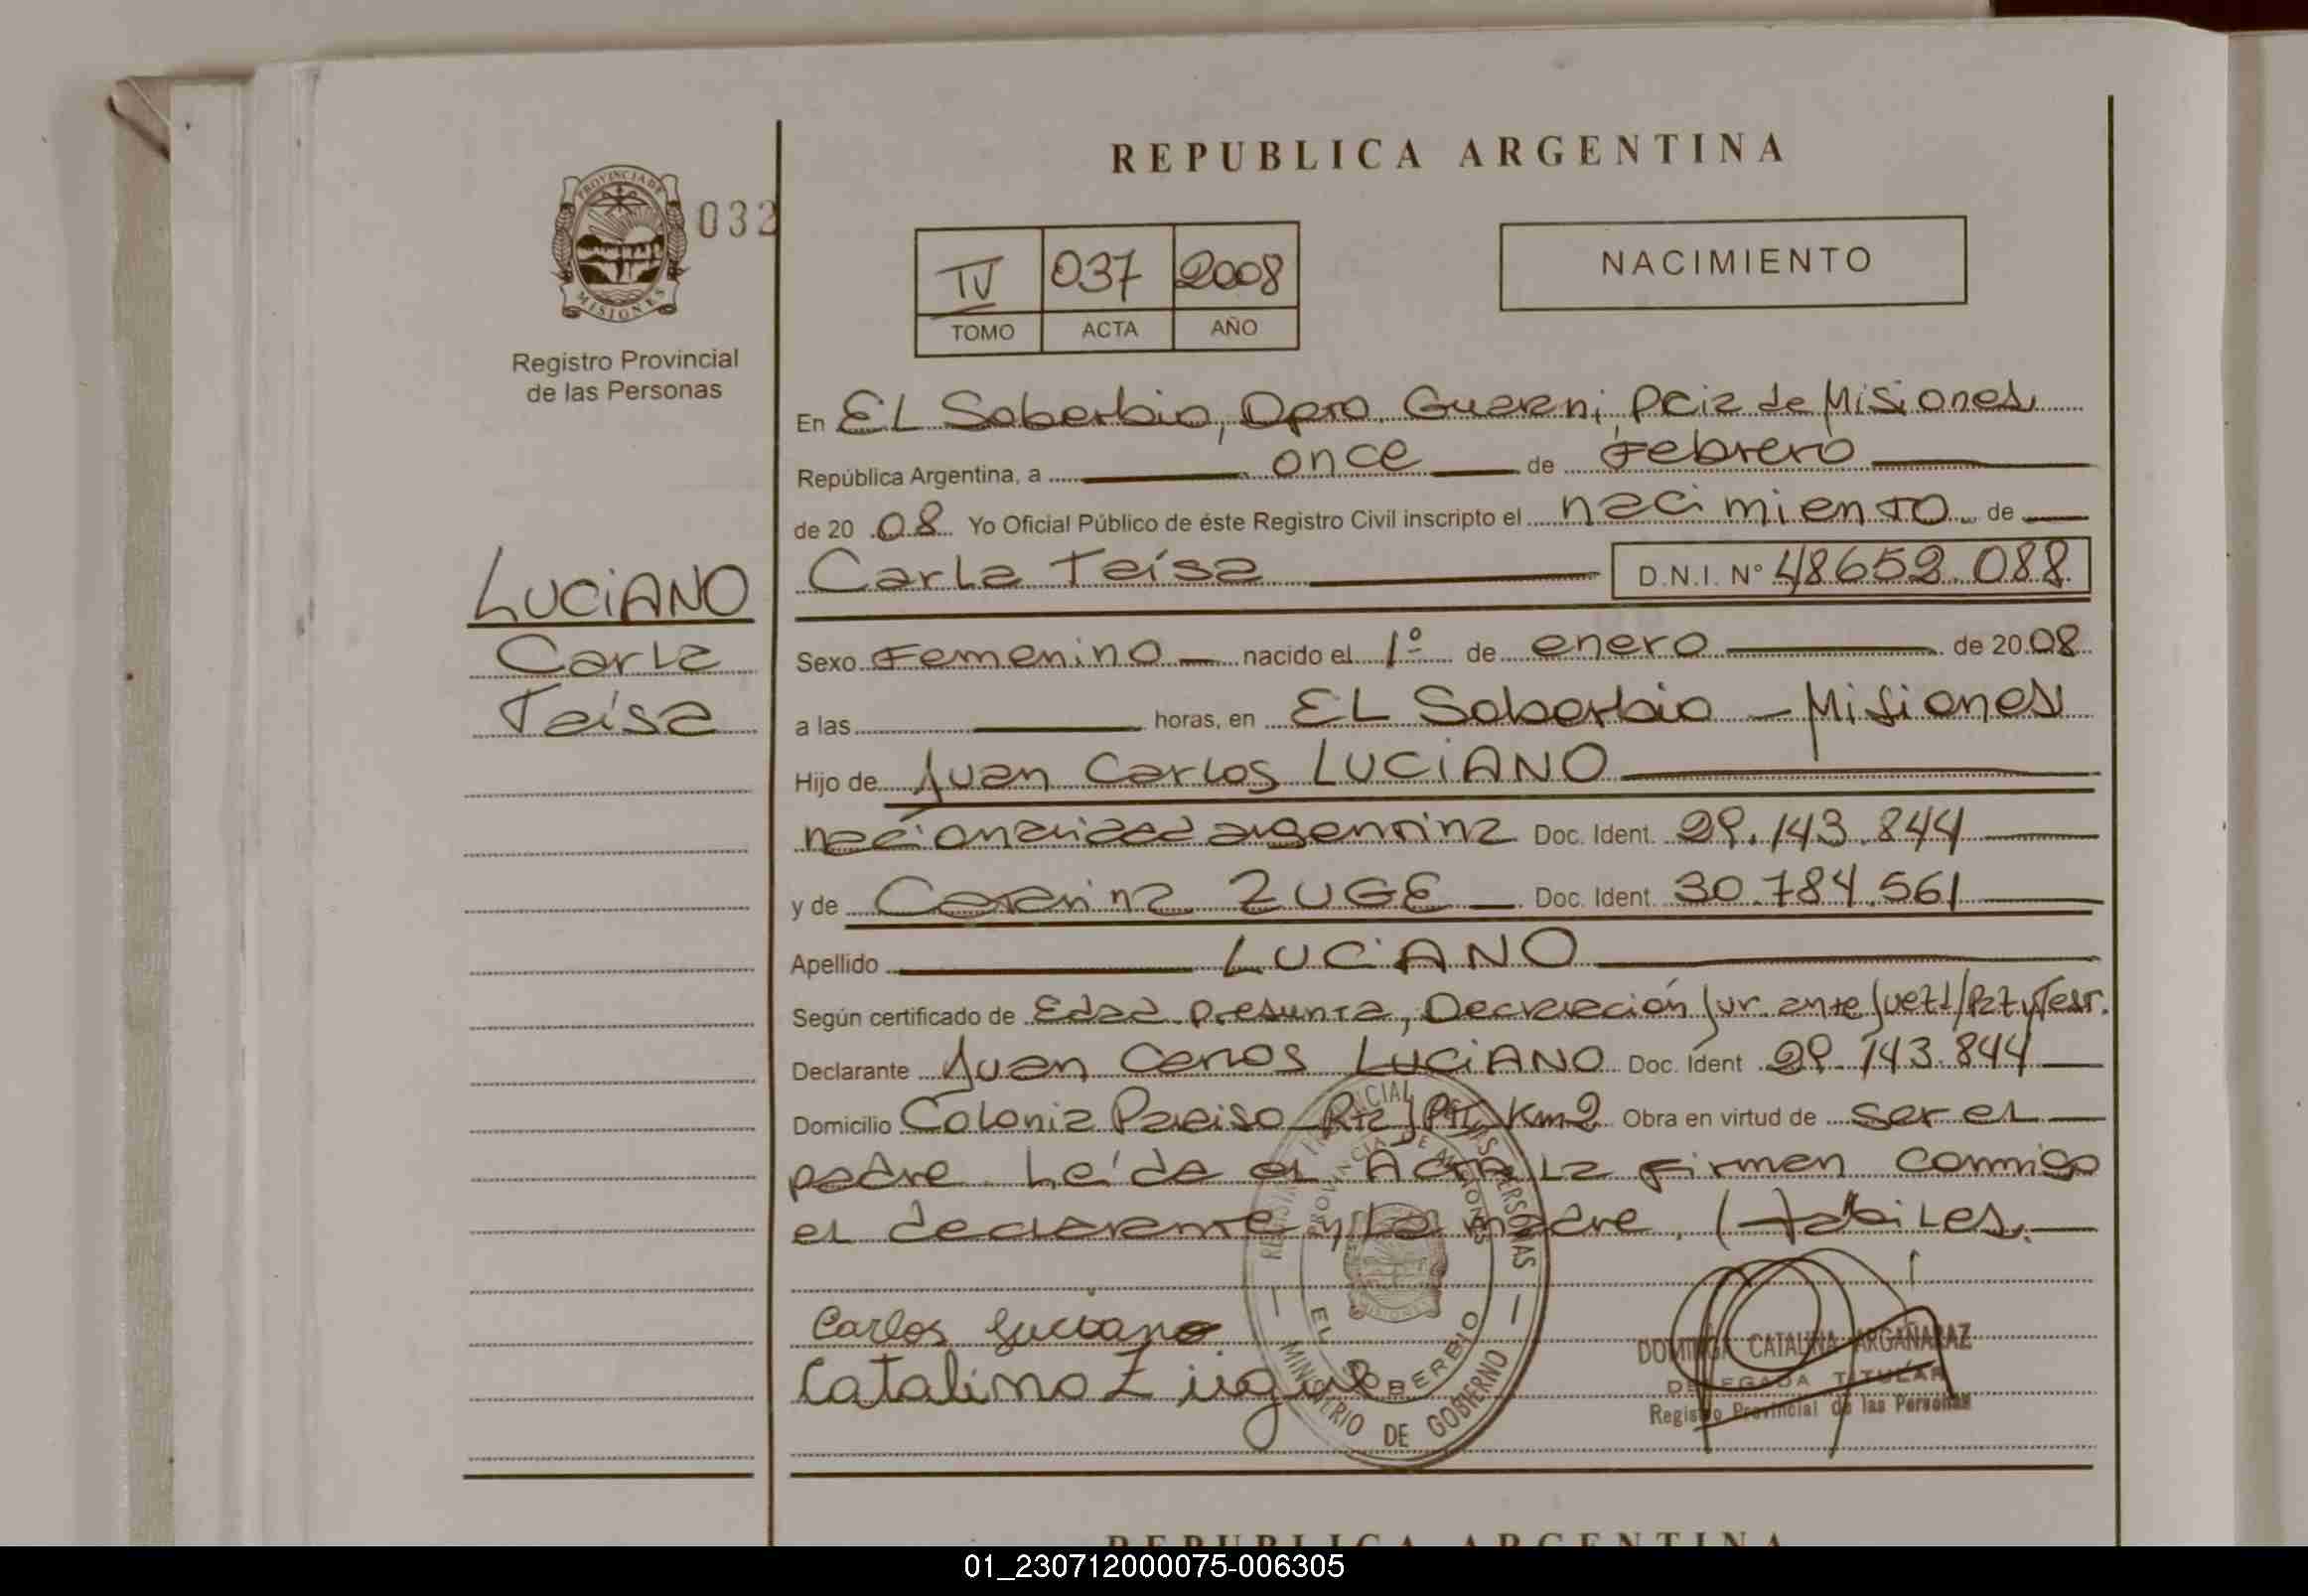 REPUBLICA ARGENTINA
PROVINCIA DE
MISIONES
032
Registro Provincial
de las Personas
IV 037 2008
TOMO ACTA AÑO
NACIMIENTO
En EL Soberbio, Dpto. Guarani, Pcia de Misiones,
República Argentina, a once de Febrero
de 20 08 Yo Oficial Público de éste Registro Civil inscripto el nacimiento de
Carla Taísa D.N.I. Nº 48652.088
LUCIANO
Carla
Taísa
Sexo Femenino nacido el 1º de enero de 20 08
a las horas, en EL Soberbio - Misiones
Hijo de Juan Carlos LUCIANO
nacionalidad argentina Doc. Ident. 29.143.844
y de ZUGE Doc. Ident. 30.784.561
Apellido LUCIANO
Según certificado de Edad presunta, Declaración Jur. ante Juez d/Paz y Test.
Declarante Juan Carlos LUCIANO Doc. Ident 29.143.844
Domicilio Colonia Paraiso Km2 Obra en virtud de ser el
padre. Leída el Acta La firman conmigo
el declarante y La madre, Habiles.
Carlos Luciano
REGISTRO PROVINCIAL DE LAS PERSONAS
PROVINCIA DE MISIONES
EL SOBERBIO
MINISTERIO DE GOBIERNO
DOMINGA CATALINA ARGAÑARAZ
DELEGADA TITULAR
Registro Provincial de las Personas
REPUBLICA ARGENTINA
01_230712000075-006305